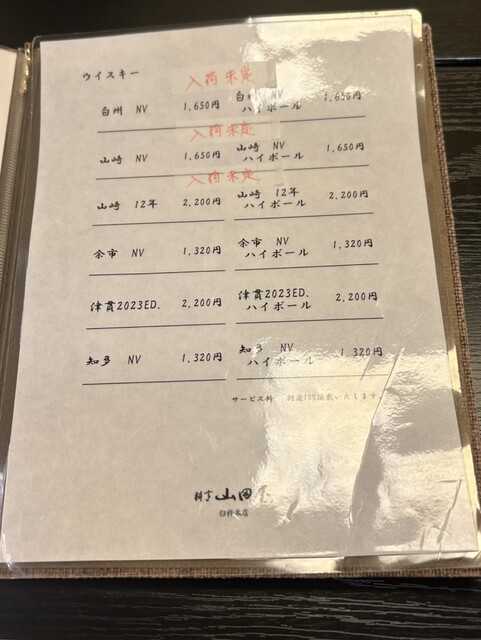 ウイスキー
入荷未定
白州 NV 1,650円 白州 NV ハイボール 1,650円
入荷未定
山崎 NV 1,650円 山崎 NV ハイボール 1,650円
入荷未定
山崎 12年 2,200円 山崎 12年 ハイボール 2,200円
余市 NV 1,320円 余市 NV ハイボール 1,320円
津貫2023ED. 2,200円 津貫2023ED. ハイボール 2,200円
知多 NV 1,320円 知多 NV ハイボール 1,320円
サービス料 別途10%頂戴いたします。
料亭 山田屋
臼杵本店